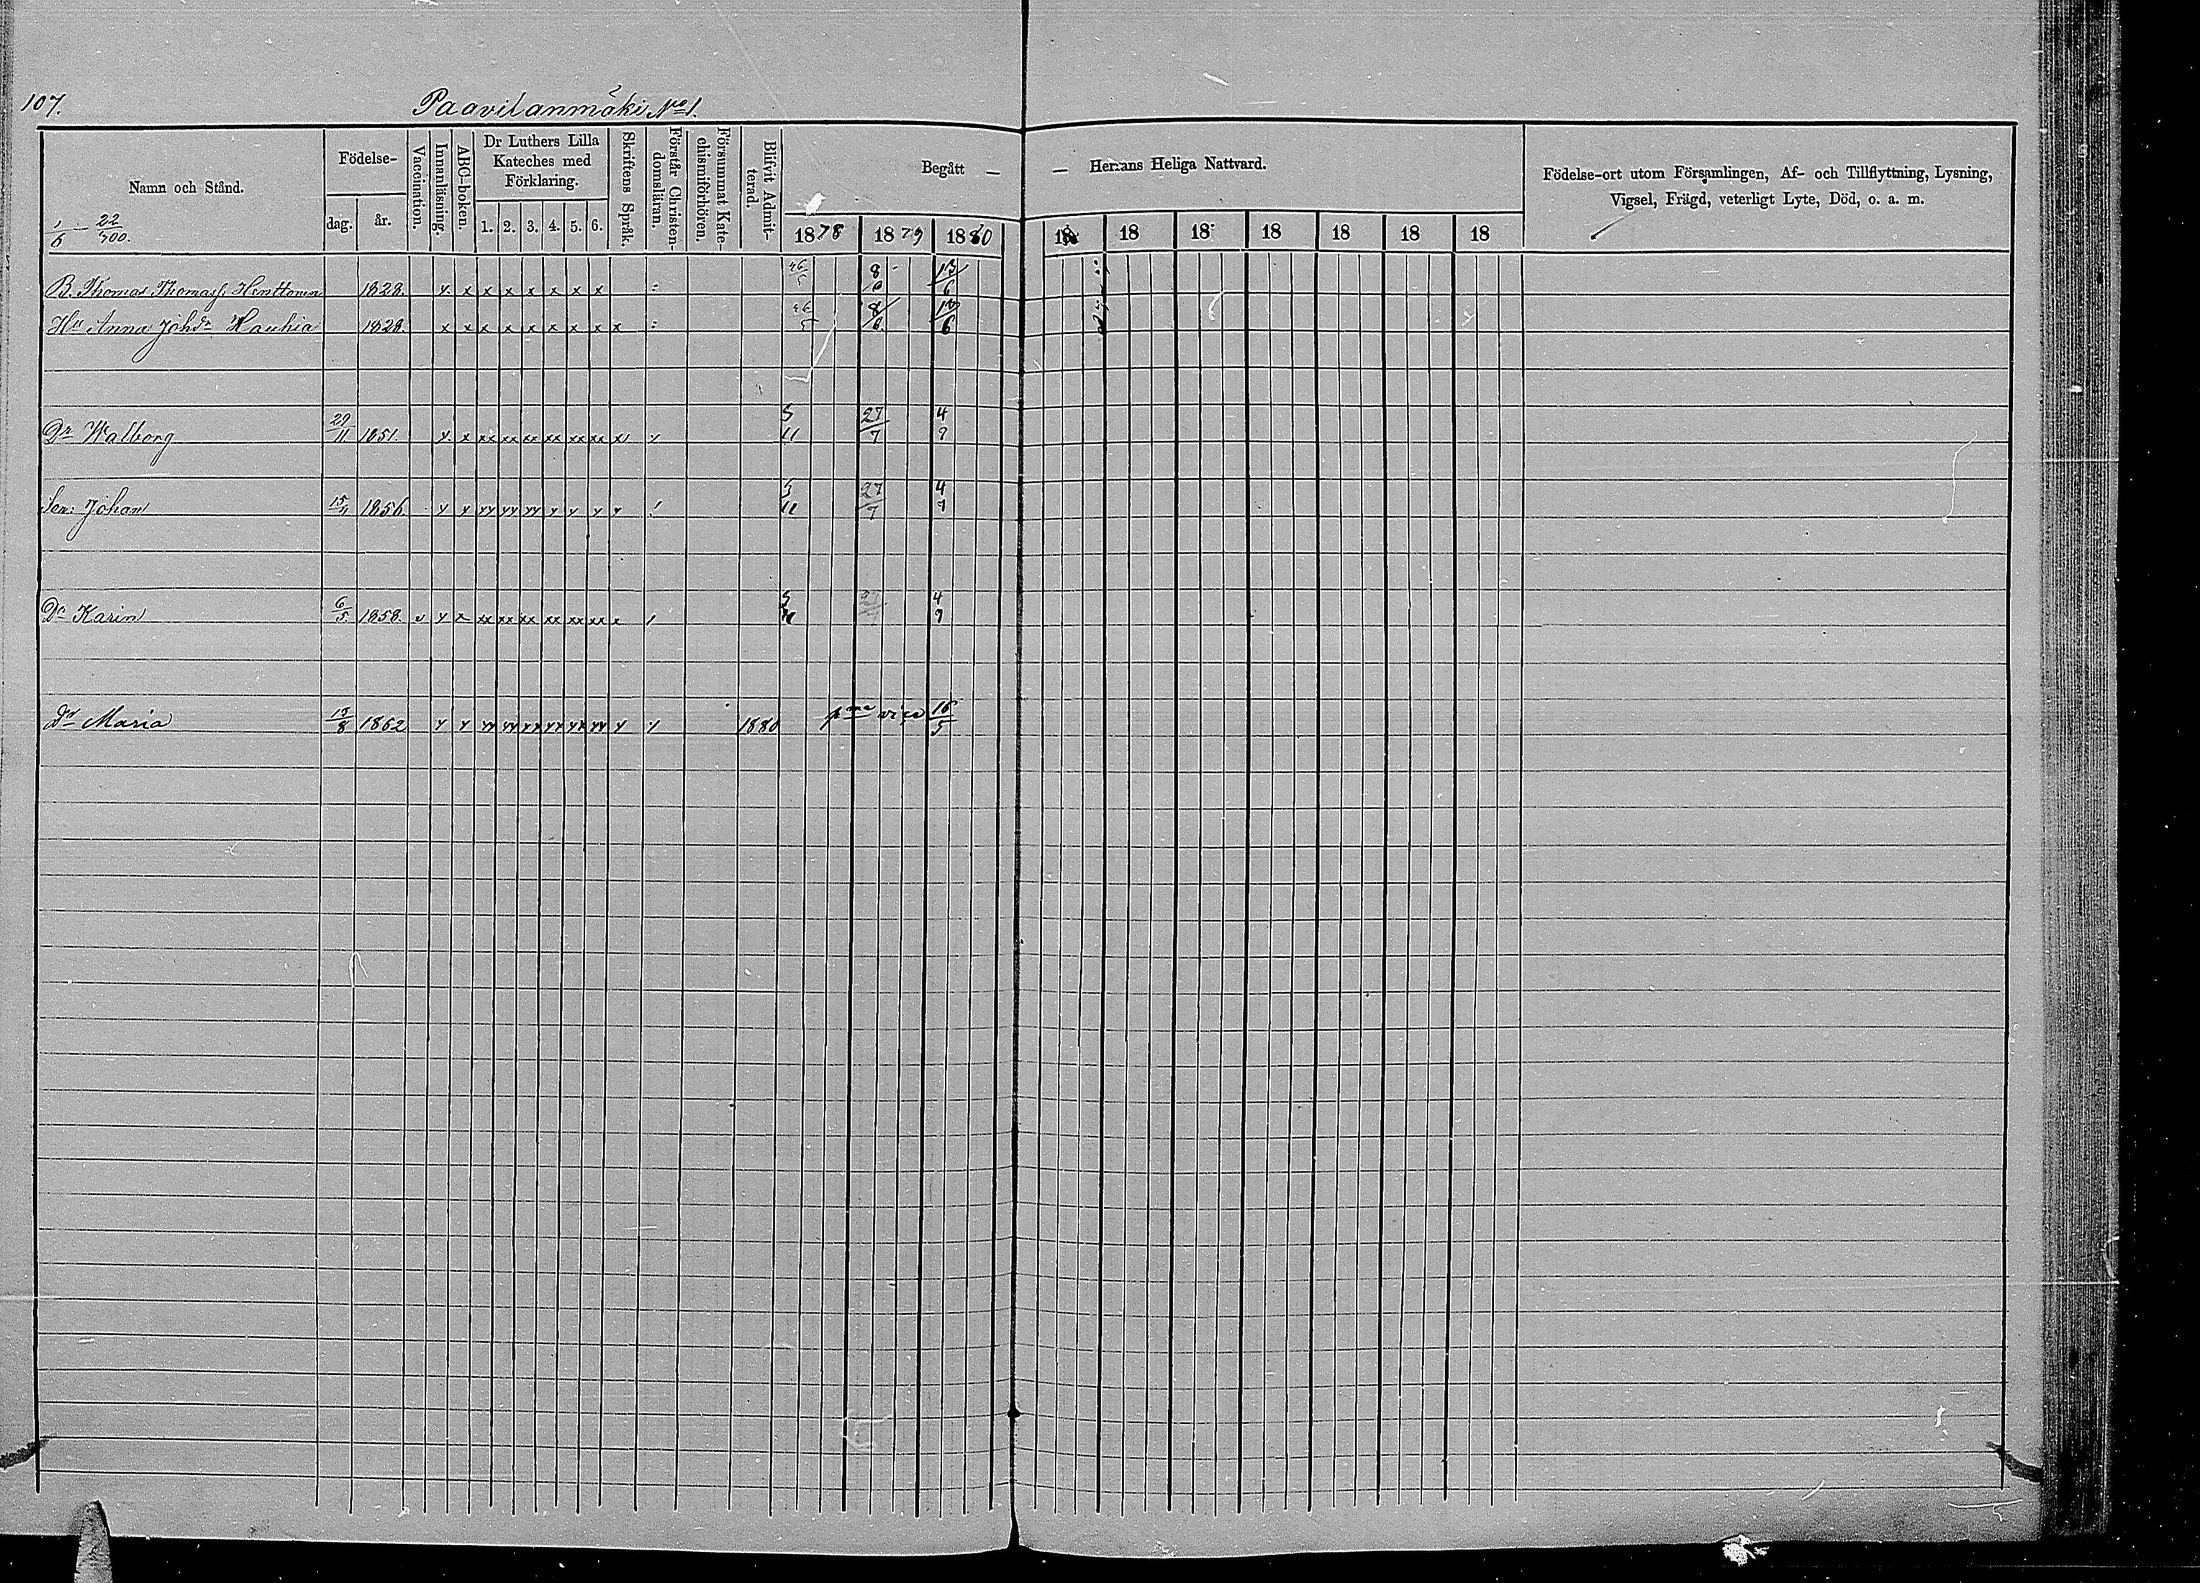 107.
Paavilanmäki No 1.
Namn och Stånd.
1/6 — 22/700.
Födelse-
dag.
år.
Vaccination.
Innanläsning.
ABC-boken.
Dr Luthers Lilla
Kateches med
Förklaring.
1. 2. 3. 4. 5. 6.
Skriftens Språk.
Förstår Christen-
domsläran.
Försummat Kate-
chismiförhören.
Blifvit Admit-
terad.
Begått —
— Herrans Heliga Nattvard.
1878 1879 1880 18 18 18 18 18 18 18
Födelse-ort utom Församlingen, Af- och Tillflyttning, Lysning,
Vigsel, Frägd, veterligt Lyte, Död, o. a. m.
B. Thomas Thomass Henttonen 1828. x x x x x x x x 26/5 8/6 13/6
Hu Anna Johdr Hauhia 1828. x x x x x x x x x 26/5 8/6 13/6
Dr Walborg 29/11 1851. x x xx xx xx xx xx xx 5/11 27/7 4/9
Son: Johan 15/11 1856. 5/11 27/7 4/9
Dr Karin 6/5 1858. v x x xx xx xx xx xx xx x 5/11 27/7 4/9
Dr Maria 15/8 1862 1880 pma vice 16/5